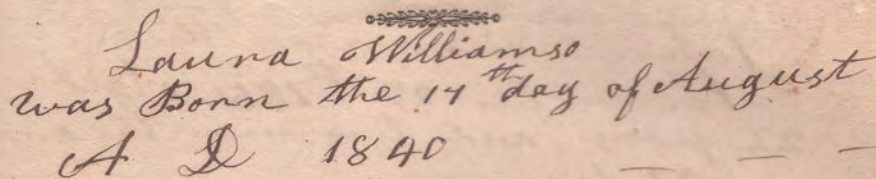 Laura Williamso
was Born the 14th day of August
A D 1840 — — —